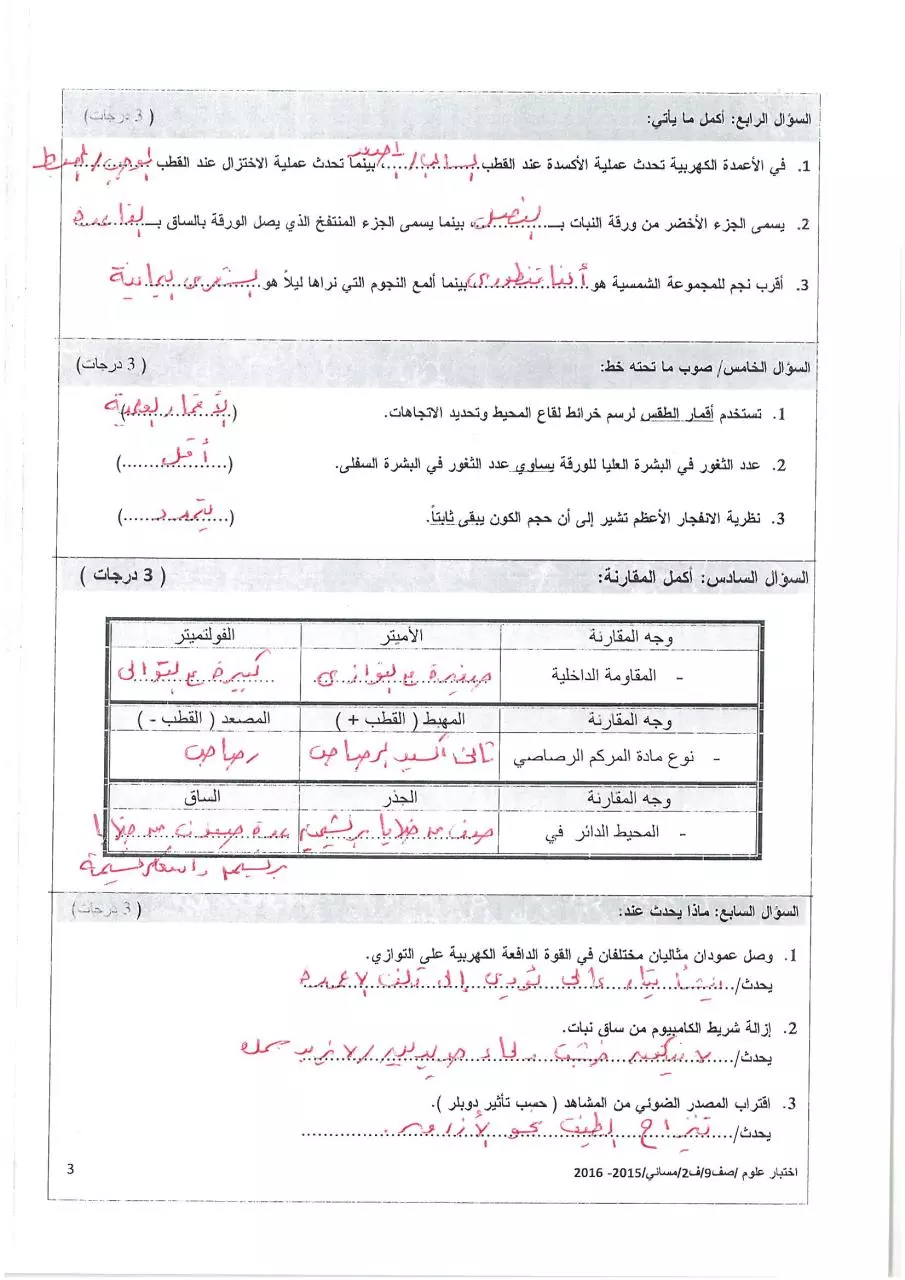 السؤال الرابع: أكمل ما يأتي: ( 3 درجات)
1. في الأعمدة الكهربية تحدث عملية الأكسدة عند القطب السالب/ المصعد، بينما تحدث عملية الاختزال عند القطب الموجب/ المهبط
2. يسمى الجزء الأخضر من ورقة النبات بـ النصل، بينما يسمى الجزء المنتفخ الذي يصل الورقة بالساق بـ القاعدة
3. أقرب نجم للمجموعة الشمسية هو ألفا قنطوري، بينما ألمع النجوم التي نراها ليلاً هو الشعرى اليمانية
السؤال الخامس/ صوب ما تحته خط: ( 3 درجات)
1. تستخدم أقمار الطقس لرسم خرائط لقاع المحيط وتحديد الاتجاهات. (الأقمار العلمية)
2. عدد الثغور في البشرة العليا للورقة يساوي عدد الثغور في البشرة السفلى. (أقل)
3. نظرية الانفجار الأعظم تشير إلى أن حجم الكون يبقى ثابتاً. (يتمدد)
السؤال السادس: أكمل المقارنة: ( 3 درجات )
وجه المقارنة الأميتر الفولتميتر
- المقاومة الداخلية صغيرة ع التوازي كبيرة ع التوالي
وجه المقارنة المهبط ( القطب + ) المصعد ( القطب - )
- نوع مادة المركم الرصاصي ثاني أكسيد الرصاص رصاص
وجه المقارنة الجذر الساق
- المحيط الدائر في صف من خلايا برنشيمية عدة صفوف من خلايا
برنشيمية واسكلرنشيمية
السؤال السابع: ماذا يحدث عند: ( 3 درجات)
1. وصل عمودان مثاليان مختلفان في القوة الدافعة الكهربية على التوازي.
يحدث/ ينشأ تيار عالي يؤدي إلى تلف الأعمدة
2. إزالة شريط الكامبيوم من ساق نبات.
يحدث/ لا يتكون خشب ولحاء جديدين/ لا يزيد سمكه
3. اقتراب المصدر الضوئي من المشاهد ( حسب تأثير دوبلر ).
يحدث/ تنزاح الطيف نحو الأزرق.
اختبار علوم /صف9/ف2/مسائي/2015- 2016 3